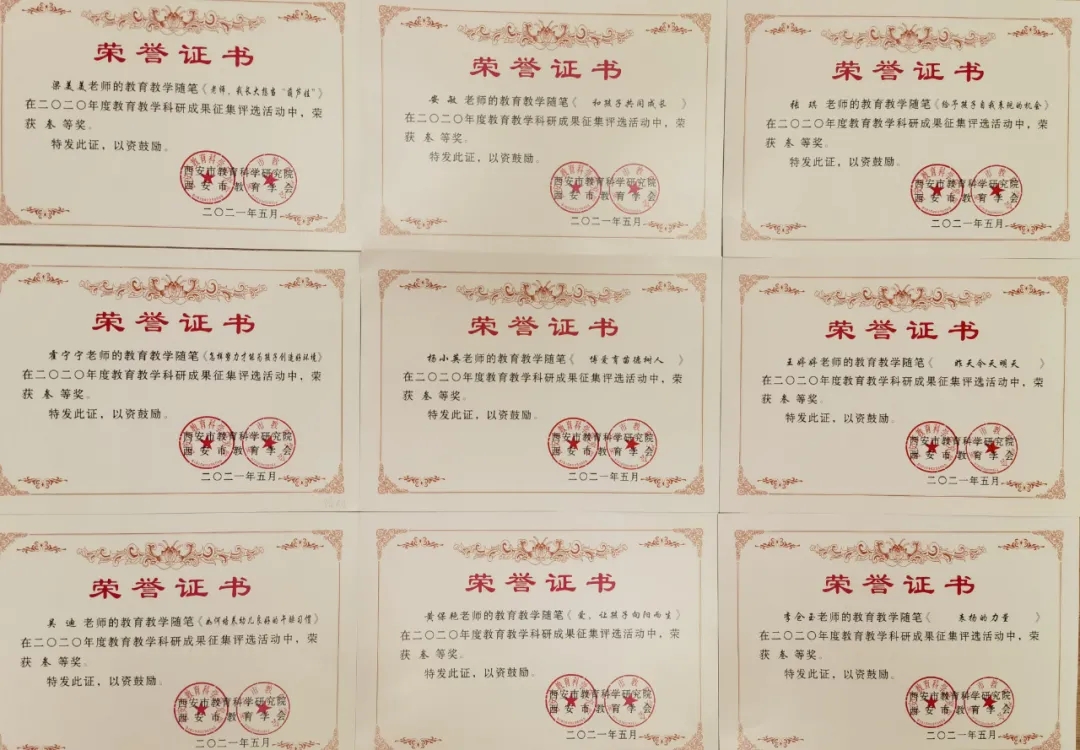 荣誉证书
梁美美老师的教育教学随笔《老师，我长大想当“葫芦娃”》
在二〇二〇年度教育教学科研成果征集评选活动中，荣
获 叁 等奖。
特发此证，以资鼓励。
西安市教育科学研究院
西安市教育学会
二〇二一年五月
荣誉证书
安敏 老师的教育教学随笔《 和孩子共同成长 》
在二〇二〇年度教育教学科研成果征集评选活动中，荣
获 叁 等奖。
特发此证，以资鼓励。
西安市教育科学研究院
西安市教育学会
二〇二一年五月
荣誉证书
张琪 老师的教育教学随笔《给予孩子自我系统的机会》
在二〇二〇年度教育教学科研成果征集评选活动中，荣
获 叁 等奖。
特发此证，以资鼓励。
西安市教育科学研究院
西安市教育学会
二〇二一年五月
荣誉证书
霍宁宁老师的教育教学随笔《怎样努力才能为孩子创造好环境》
在二〇二〇年度教育教学科研成果征集评选活动中，荣
获 叁 等奖。
特发此证，以资鼓励。
西安市教育科学研究院
西安市教育学会
二〇二一年五月
荣誉证书
杨小英老师的教育教学随笔《 博爱育苗德树人 》
在二〇二〇年度教育教学科研成果征集评选活动中，荣
获 叁 等奖。
特发此证，以资鼓励。
西安市教育科学研究院
西安市教育学会
二〇二一年五月
荣誉证书
王婷婷老师的教育教学随笔《 昨天今天明天 》
在二〇二〇年度教育教学科研成果征集评选活动中，荣
获 叁 等奖。
特发此证，以资鼓励。
西安市教育科学研究院
西安市教育学会
二〇二一年五月
荣誉证书
吴迪 老师的教育教学随笔《如何培养幼儿良好的午睡习惯》
在二〇二〇年度教育教学科研成果征集评选活动中，荣
获 叁 等奖。
特发此证，以资鼓励。
西安市教育科学研究院
西安市教育学会
二〇二一年五月
荣誉证书
黄保艳老师的教育教学随笔《爱，让孩子向阳而生》
在二〇二〇年度教育教学科研成果征集评选活动中，荣
获 叁 等奖。
特发此证，以资鼓励。
西安市教育科学研究院
西安市教育学会
二〇二一年五月
荣誉证书
李金玉老师的教育教学随笔《 表扬的力量 》
在二〇二〇年度教育教学科研成果征集评选活动中，荣
获 叁 等奖。
特发此证，以资鼓励。
西安市教育科学研究院
西安市教育学会
二〇二一年五月